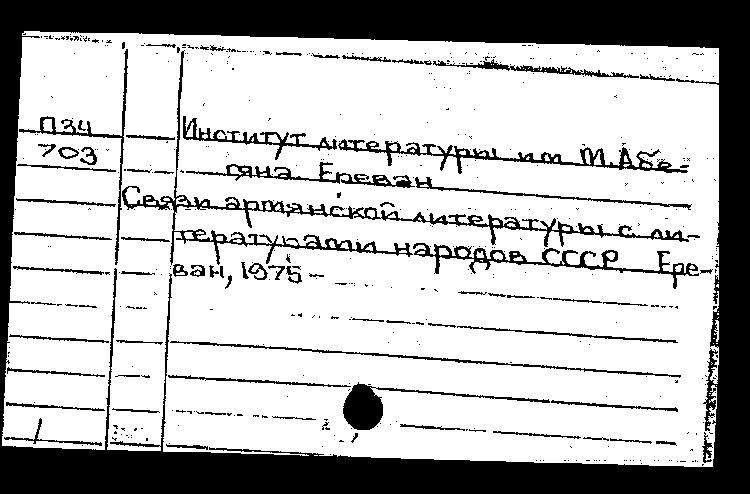 П34
703
Институт литературы им М. Абе-
гяна. Ереван
Связи армянской литературы с ли-
тературами народов СССР. Ере-
ван, 1975 -